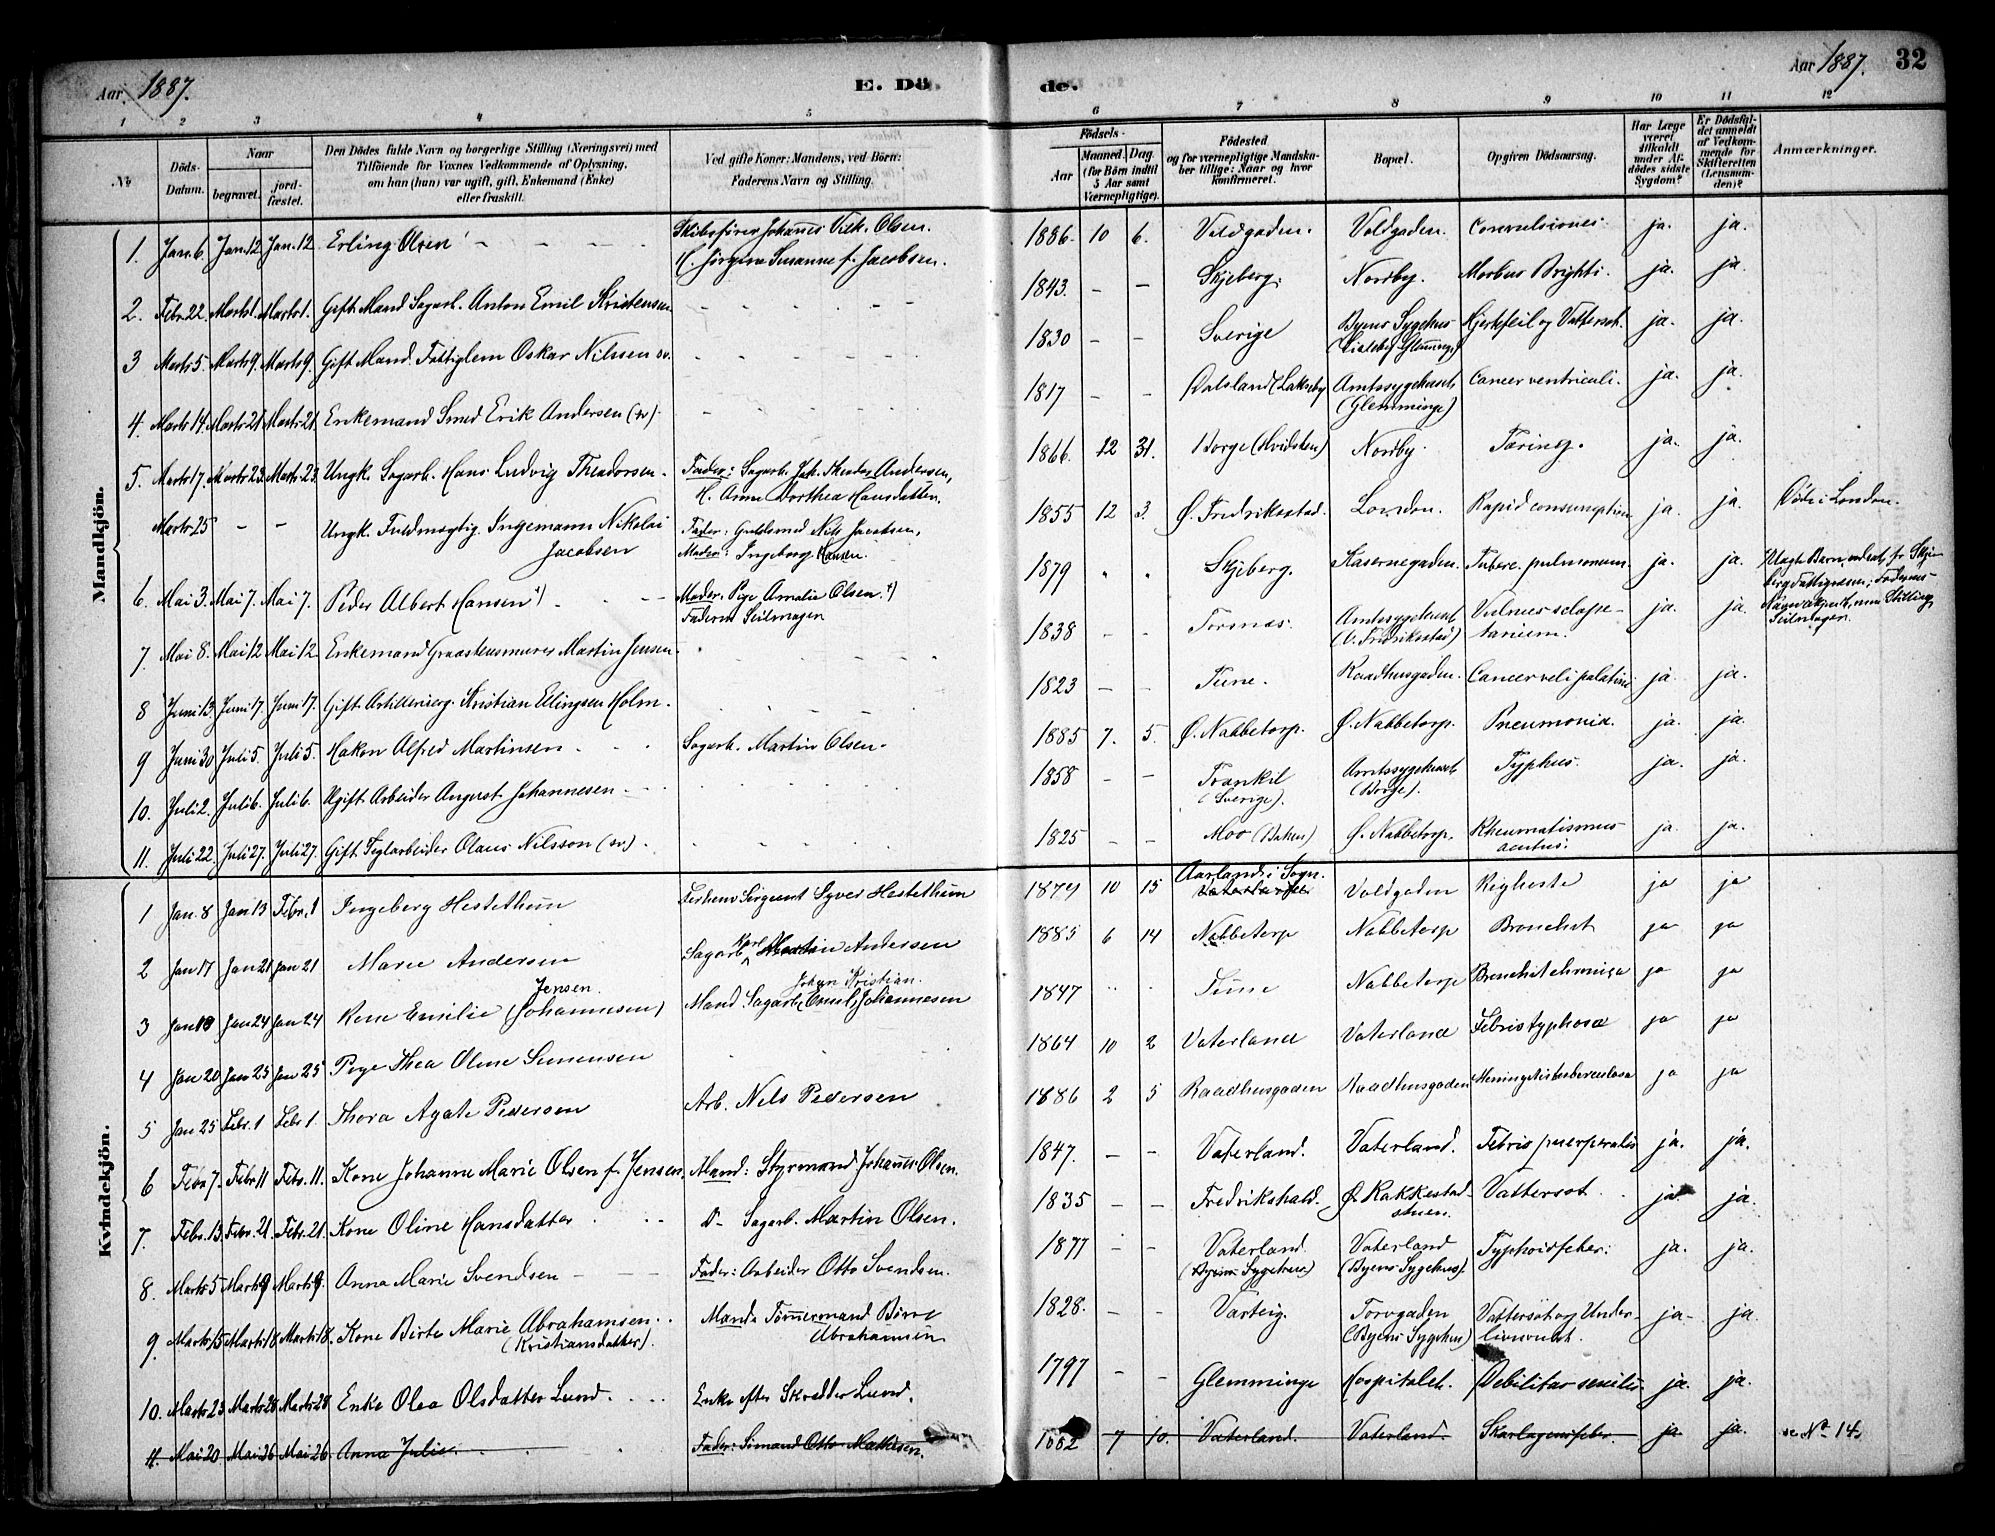 Aar 1887. E. Dö
de. Aar 1887. 32
1 2 3 4 5
6 7 8 9 10 11 12
No
Döds-Datum.
Naar
begravet.
jord-fæstet.
Den Dödes fulde Navn og borgerlige Stilling (Næringsvei) med
Tilföiende for Voxnes Vedkommende af Oplysning,
om han (hun) var ugift, gift, Enkemand (Enke)
eller fraskilt.
Ved gifte Koner: Mandens, ved Börn:
Faderens Navn og Stilling.
Födsels-
Aar
Maaned. Dag.
(for Börn indtil
5 Aar samt
Værnepligtige).
Födested
og for værnepligtige Mandska-
ber tillige: Naar og hvor
konfirmeret.
Bopæl.
Opgiven Dödsaarsag.
Har Læge
været
tilkaldt
under Af-
dödes sidste
Sygdom?
Er Dödsfal-
det anmeldt
af Vedkom-
mende for
Skifteretten
(Lensman-
den)?
Anmærkninger.
Mandkjön.
1. Jan. 6. Jan. 12 Jan. 12 Erling Olsen Skibsfører Johannes Vilh. Olsen.
H. Jørgine Susanne f. Jacobsen. 1886. 10 6. Voldgaden. Voldgaden. Convulsiones. ja. ja.
2. Febr. 22. Marts 1. Marts 1. Gift Mand Sagarb. Anton Emil Kristensen 1843. - - Skjeberg. Nordby. Morbus Brighti. ja. ja.
3 Marts 5. Marts 9. Marts 9. Gift Mand. Fattiglem Oskar Nilssen sv. 1830 - - Sverige Byens Sygehus Hjertefeil og Vattersot. ja. ja.
4. Marts 14. Marts 21. Marts 21. Enkemand Smed Erik Andersen (sv). 1817 - - Dalsland Amtssygehuset (Glemminge) Cancer ventriculi. ja. ja.
5. Marts 17. Marts 23. Marts 23. Ungk. Sagarb. Hans Ludvig Theodorsen. Fader: Sagarb. Joh. Theodor Andersen,
H. Anne Dorthea Hansdatter. 1866. 12 31. Borge Nordby. Tæring. ja. ja.
Marts 25 - - Ungk. Fuldmægtig. Ingemann Nikolai
Jacobsen Fader: Guldsmed Nils Jacobsen,
Moder: Ingeborg Hansen. 1855 12 3. Ø. Fredriksstad. London. Rapid consumption ja. ja. Døde i London.
6. Mai 3. Mai 7. Mai 7. Peder Albert Hansen Moder. Pige Amalie Olsen.
Faderen Seilmager 1879 Skjeberg. Kasernegaden. Tuberc. pulmonum. ja. ja.
7 Mai 8. Mai 12 Mai 12. Enkemand Graastensmurer Martin Jensen. 1838 - - Tornæs. Amtssygehuset
(V. Fredriksstad) Vulnus sclope-
tarium. ja. ja.
8 Juni 13. Juni 17. Juni 17. Gift Artilleriserg. Kristian Ellingsen Holm. 1823 - - Tune. Raadhusgaden. Cancer veli palatini ja ja.
9 Juni 30 Juli 5. Juli 5. Hakon Alfred Martinsen Sagarb. Martin Olsen. 1885 7. 5. Ø. Nabbetorp. Ø. Nabbetorp. Pneumonia. ja. ja.
10. Juli 2. Juli 6. Juli 6. Ugift Arbeider August Johannesen. 1858 - - Trankil
(Sverige). Amtssygehuset
(Borge). Typhus. ja. ja.
11. Juli 22. Juli 27. Juli 27. Gift Teglarbeider Olaus Nilsson (sv). 1825 - - Moo Ø. Nabbetorp. Rheumatismus
acutus. ja. ja.
Kvindekjön.
1 Jan. 8 Jan 13 Febr. 1 Ingeberg Hestethun Sergeant Syver Hestethun 1879 10 15 Aarland i Sogn. Voldgaden ja ja
2 Jan 17 Jan 21 Jan 21 Marie Andersen Sagarb. Karl Martin Andersen 1885 6 14 Nabbetorp Nabbetorp Bronchit ja ja
3 Jan 18 Jan 24 Jan 24 Kone Emilie Jensen (Johannesen) Mand Sagarb. Emil Johan Kristian Johannesen 1847 Tune Nabbetorp Bronchit chronica ja ja
4 Jan 20 Jan 25 Jan 25 Pige Thea Oline Simensen 1864 10 2 Vaterland Vaterland Febris typhosa ja ja
5 Jan 25 Febr. 1 Febr 1. Thora Agate Pedersen Arb. Nels Pedersen 1886 2 5 Raadhusgaden Raadhusgaden Meningitis tuberculosa ja ja
6 Febr 7. Febr 11 Febr. 11. Kone Johanne Marie Olsen f. Jensen. Mand: Styrmand Johannes Olsen. 1847. - - Vaterland. Vaterland. Febris puerperalis ja. ja.
7. Febr. 13 Febr. 21. Febr. 21. Kone Oline Hansdatter D- Sagarb. Martin Olsen. 1835 - - Fredrikshald. Ø. Rakkestad-
stuen. Vattersot. ja ja.
8. Marts 5 Marts 9 Marts 9. Anna Marie Svendsen Fader: Arbeider Otto Svendsen. 1877 - - Vaterland.
(Byens Sygehus) Vaterland
(Byens Sygehus). Typhoidfeber. ja. ja.
9. Marts 15 Marts 18 Marts 18. Kone Birte Marie Abrahamsen
(Kristiansdatter). Mand: Tømmermand Börre
Abrahamsen 1828. - - Varteig. Torvgaden
(Byens Sygehus) Vattersot og Under-
livsondt. ja- ja.
10. Marts 23 Marts 28 Marts 28. Enke Olea Olsdatter Lund. Enke efter Skrædder Lund. 1797 - - Glemminge Hospitalet. Debilitas senilis. ja. ja.
11. Mai 20 Mai 26 Mai 26. Anna Julie Fader: Simand Otto Mathisen. 1882 7 10. Vaterland. Vaterland. Skarlagensfeber ja ja. se No 14.